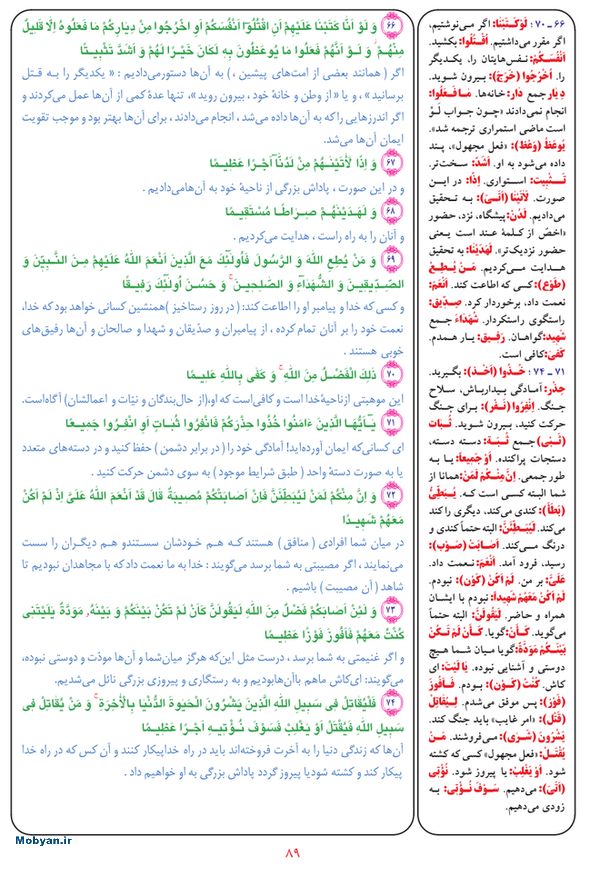 ۶۶ ـ ۷۰ : لَوْ کَتَبْنَا: اگر می‌نوشتیم،
اگر مقرر می‌داشتیم. اقْتُلُوا: بکشید.
أَنْفُسَکُمْ: نفس‌هایتان را، یکدیگر
را. اُخْرُجُوا (خَرَجَ): بیرون شوید.
دِیَار جمع دَار: خانه‌ها. مَا فَعَلُوا:
انجام نمی‌دادند «چون جواب لَوْ
است ماضی استمراری ترجمه شد».
یُوعَظُ (وَعَظَ): «فعل مجهول»، پند
داده می‌شود به او. أَشَدّ: سخت‌تر.
تَثْبِیت: استواری. إِذًا: در این
صورت. لَآتَیْنَا (أَتَیَ): به تحقیق
می‌دادیم. لَدُنْ: پیشگاه، نزد، حضور
«اخصّ از کلمهٔ عند است یعنی
حضور نزدیک‌تر». لَهَدَیْنَا: به تحقیق
هدایت می‌کردیم. مَنْ یُطِعِ
(طَوَعَ): کسی که اطاعت کند. أَنْعَمَ:
نعمت داد، برخوردار کرد. صِدِّیق:
راستگوی راستکردار. شُهَدَاءَ جمع
شهید: گواهان. رَفِیق: یار همدم.
کَفَیَ: کافی است.
۷۱ ـ ۷۴ : خُذُوا (أَخَذَ): بگیرید.
حِذْر: آمادگی بیدارباش، سلاح
جنگ. اِنْفِرُوا (نَفَرَ): برای جنگ
حرکت کنید. بیرون شوید. ثُبَات
(ثَبَیَ) جمع ثُبَة: دسته دسته،
دستجات پراکنده. أَوْ جَمِیعاً: یا به
طور جمعی. إِنَّ مِنْکُمْ لَمَنْ: همانا از
شما البته کسی است که. یُبَطِّئُ
(بَطَأَ): کندی می‌کند، دیگری را کند
می‌کند. لَیُبَطِّئَنَّ: البته حتماً کندی و
درنگ می‌کند. أَصَابَتْ (صَوَبَ):
رسید، فرود آمد. أَنْعَمَ: نعمت داد.
عَلَیَّ: بر من. لَمْ أَکُنْ (کَوَنَ): نبودم.
لَمْ أَکُنْ مَعَهُمْ شَهِیداً: نبودم با ایشان
همراه و حاضر. لَیَقُولَنَّ: البته حتماً
می‌گوید. کَأَنْ: گویا. کَأَنْ لَمْ تَکُنْ
بَیْنَکُمْ مَوَدَّةٌ: گویا میان شما هیچ
دوستی و آشنایی نبوده. یَا لَیْتَ: ای
کاش. کُنْتُ (کَوَنَ): بودم. فَأَفُوزَ
(فَوَزَ): پس موفق می‌شدم. لِیُقَاتِلْ
(قَتَلَ): «امر غایب» باید جنگ کند.
یَشْرُونَ (شَرَیَ): می‌فروشند. مَنْ
یُقْتَلْ: «فعل مجهول» کسی که کشته
شود. أَوْ یَغْلِبْ: یا پیروز شود. نُؤْتِی
(أَتَیَ): می‌دهیم. سَوْفَ نُؤْتِی: به
زودی می‌دهیم.
۶۶ وَ لَوْ أَنَّا کَتَبْنَا عَلَیْهِمْ أَنِ اقْتُلُوٓا أَنْفُسَکُمْ أَوِ اخْرُجُوا مِنْ دِیَارِکُمْ مَا فَعَلُوهُ إِلَّا قَلِیلٌ
مِنْهُمْ ۖ وَ لَوْ أَنَّهُمْ فَعَلُوا مَا یُوعَظُونَ بِهِ لَکَانَ خَیْرًا لَهُمْ وَ أَشَدَّ تَثْبِیتًا
اگر ( همانند بعضی از امت‌های پیشین ، ) به آن‌ها دستورمی‌دادیم : « یکدیگر را به قتل
برسانید » ، و یا « از وطن و خانهٔ خود ، بیرون روید »، تنها عدهٔ کمی از آن‌ها عمل می‌کردند و
اگر اندرزهایی را که به آن‌ها داده می‌شد ، انجام می‌دادند ، برای آن‌ها بهتر بود و موجب تقویت
ایمان آن‌ها می‌شد.
۶۷ وَ إِذًا لَأَتَیْنَٰهُمْ مِنْ لَدُنَّآ أَجْرًا عَظِیمًا
و در این صورت ، پاداش بزرگی از ناحیهٔ خود به آن‌هامی‌دادیم .
۶۸ وَ لَهَدَیْنَٰهُمْ صِرَاطًا مُسْتَقِیمًا
و آنان را به راه راست ، هدایت می‌کردیم .
۶۹ وَ مَنْ یُطِعِ اللهَ وَ الرَّسُولَ فَأُولَٰٓئِکَ مَعَ الَّذِینَ أَنْعَمَ اللهُ عَلَیْهِمْ مِنَ النَّبِیِّینَ وَ
الصِّدِّیقِینَ وَ الشُّهَدَآءِ وَ الصَّٰلِحِینَ ۚ وَ حَسُنَ أُولَٰٓئِکَ رَفِیقًا
و کسی که خدا و پیامبر او را اطاعت کند؛ ( در روز رستاخیز )همنشین کسانی خواهد بود که خدا،
نعمت خود را بر آنان تمام کرده ، از پیامبران و صدّیقان و شهدا و صالحان و آن‌ها رفیق‌های
خوبی هستند .
۷۰ ذَٰلِکَ الْفَضْلُ مِنَ اللهِ ۚ وَ کَفَیٰ بِاللهِ عَلِیمًا
این موهبتی ازناحیهٔ‌خدا است و کافی‌است که او،(از حال‌بندگان و نیّات و اعمالشان) آگاه‌است.
۷۱ یَٰٓأَیُّهَا الَّذِینَ ءَامَنُوا خُذُوا حِذْرَکُمْ فَانْفِرُوا ثُبَاتٍ أَوِ انْفِرُوا جَمِیعًا
ای کسانی‌که ایمان آورده‌اید! آمادگی خود را ( در برابر دشمن ) حفظ کنید و در دسته‌های متعدد
یا به صورت دستهٔ واحد ( طبق شرایط موجود ) به سوی دشمن حرکت کنید .
۷۲ وَ إِنَّ مِنْکُمْ لَمَنْ لَیُبَطِّئَنَّ فَإِنْ أَصَابَتْکُمْ مُصِیبَةٌ قَالَ قَدْ أَنْعَمَ اللهُ عَلَیَّ إِذْ لَمْ أَکُنْ
مَعَهُمْ شَهِیدًا
در میان شما افرادی ( منافق ) هستند که هم خودشان سستندو هم دیگران را سست
می‌نمایند ، اگر مصیبتی به شما برسد می‌گویند : خدا به ما نعمت داد که با مجاهدان نبودیم تا
شاهد ( آن مصیبت ) باشیم .
۷۳ وَ لَئِنْ أَصَابَکُمْ فَضْلٌ مِنَ اللهِ لَیَقُولَنَّ کَأَنْ لَمْ تَکُنْ بَیْنَکُمْ وَ بَیْنَهُ مَوَدَّةٌ یَٰلَیْتَنِی
کُنْتُ مَعَهُمْ فَأَفُوزَ فَوْزًا عَظِیمًا
و اگر غنیمتی به شما برسد ، درست مثل این‌که هرگز میان‌شما و آن‌ها مودّت و دوستی نبوده،
می‌گویند: ای‌کاش ماهم باآن‌هابودیم و به رستگاری و پیروزی بزرگی نائل می‌شدیم.
۷۴ فَلْیُقَاتِلْ فِی سَبِیلِ اللهِ الَّذِینَ یَشْرُونَ الْحَیَوٰةَ الدُّنْیَا بِالْأَخِرَةِ ۚ وَ مَنْ یُقَاتِلْ فِی
سَبِیلِ اللهِ فَیُقْتَلْ أَوْ یَغْلِبْ فَسَوْفَ نُؤْتِیهِ أَجْرًا عَظِیمًا
آن‌ها که زندگی دنیا را به آخرت فروخته‌اند باید در راه خداپیکار کنند و آن کس که در راه خدا
پیکار کند و کشته شودیا پیروز گردد پاداش بزرگی به او خواهیم داد .
Mobyan.ir
۸۹